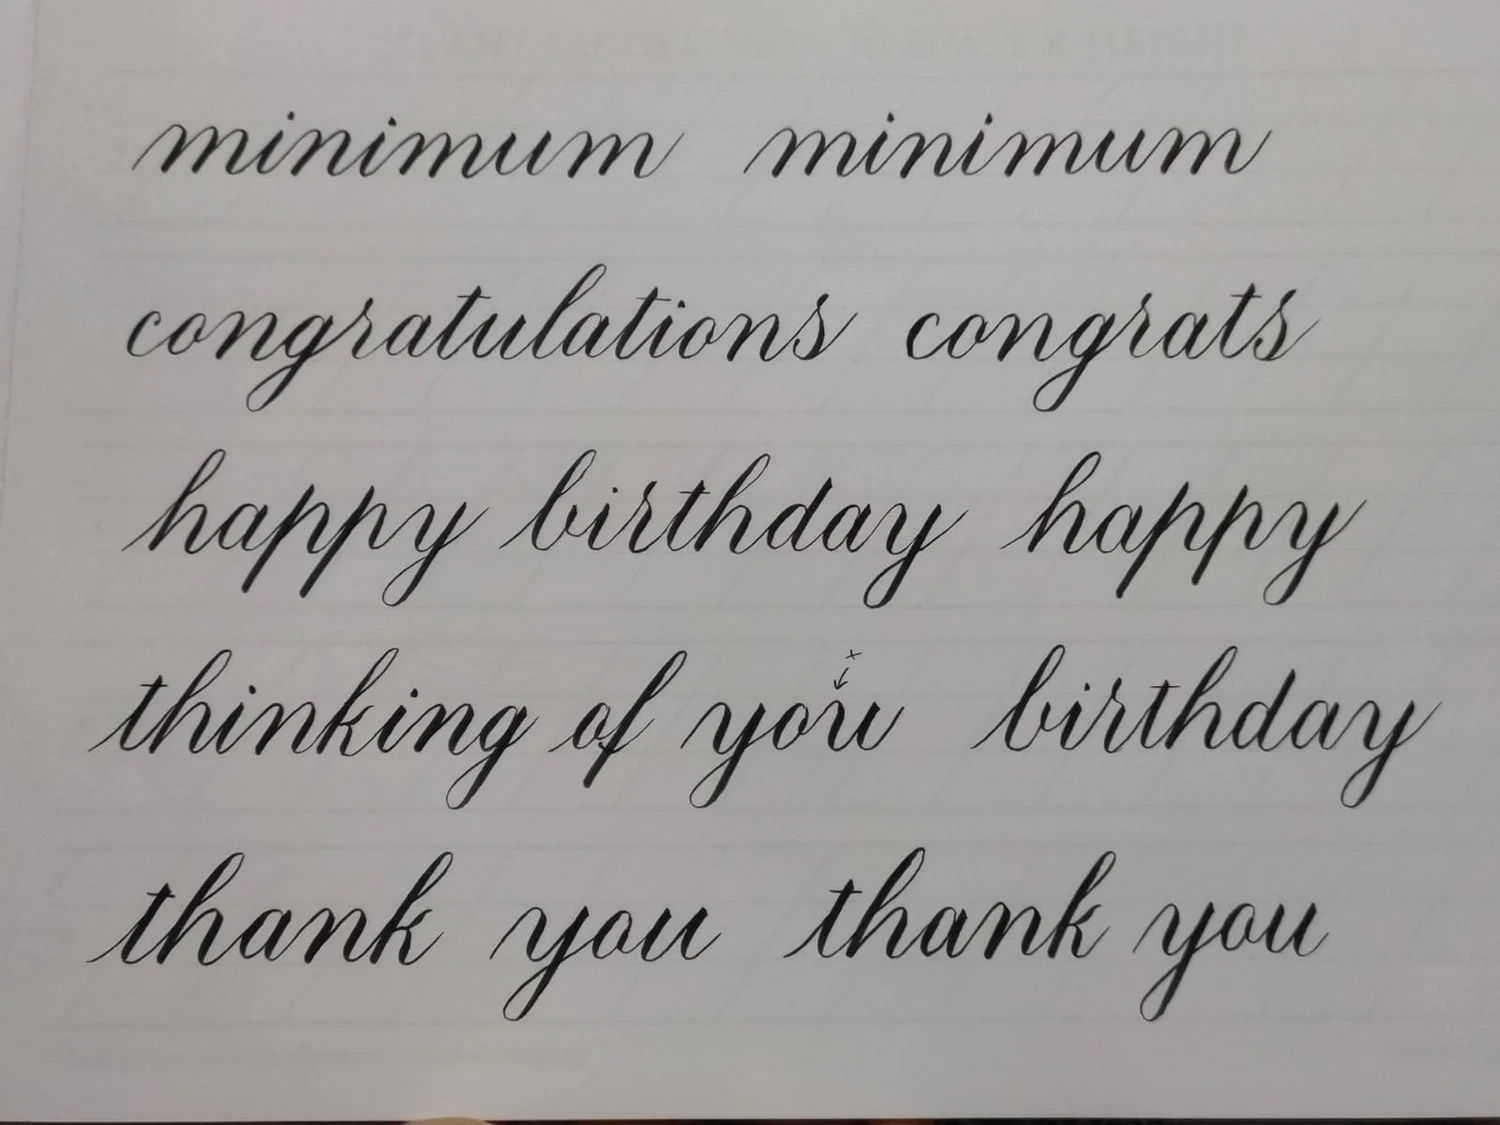 minimum minimum
congratulations congrats
happy birthday happy
thinking of you birthday
thank you thank you